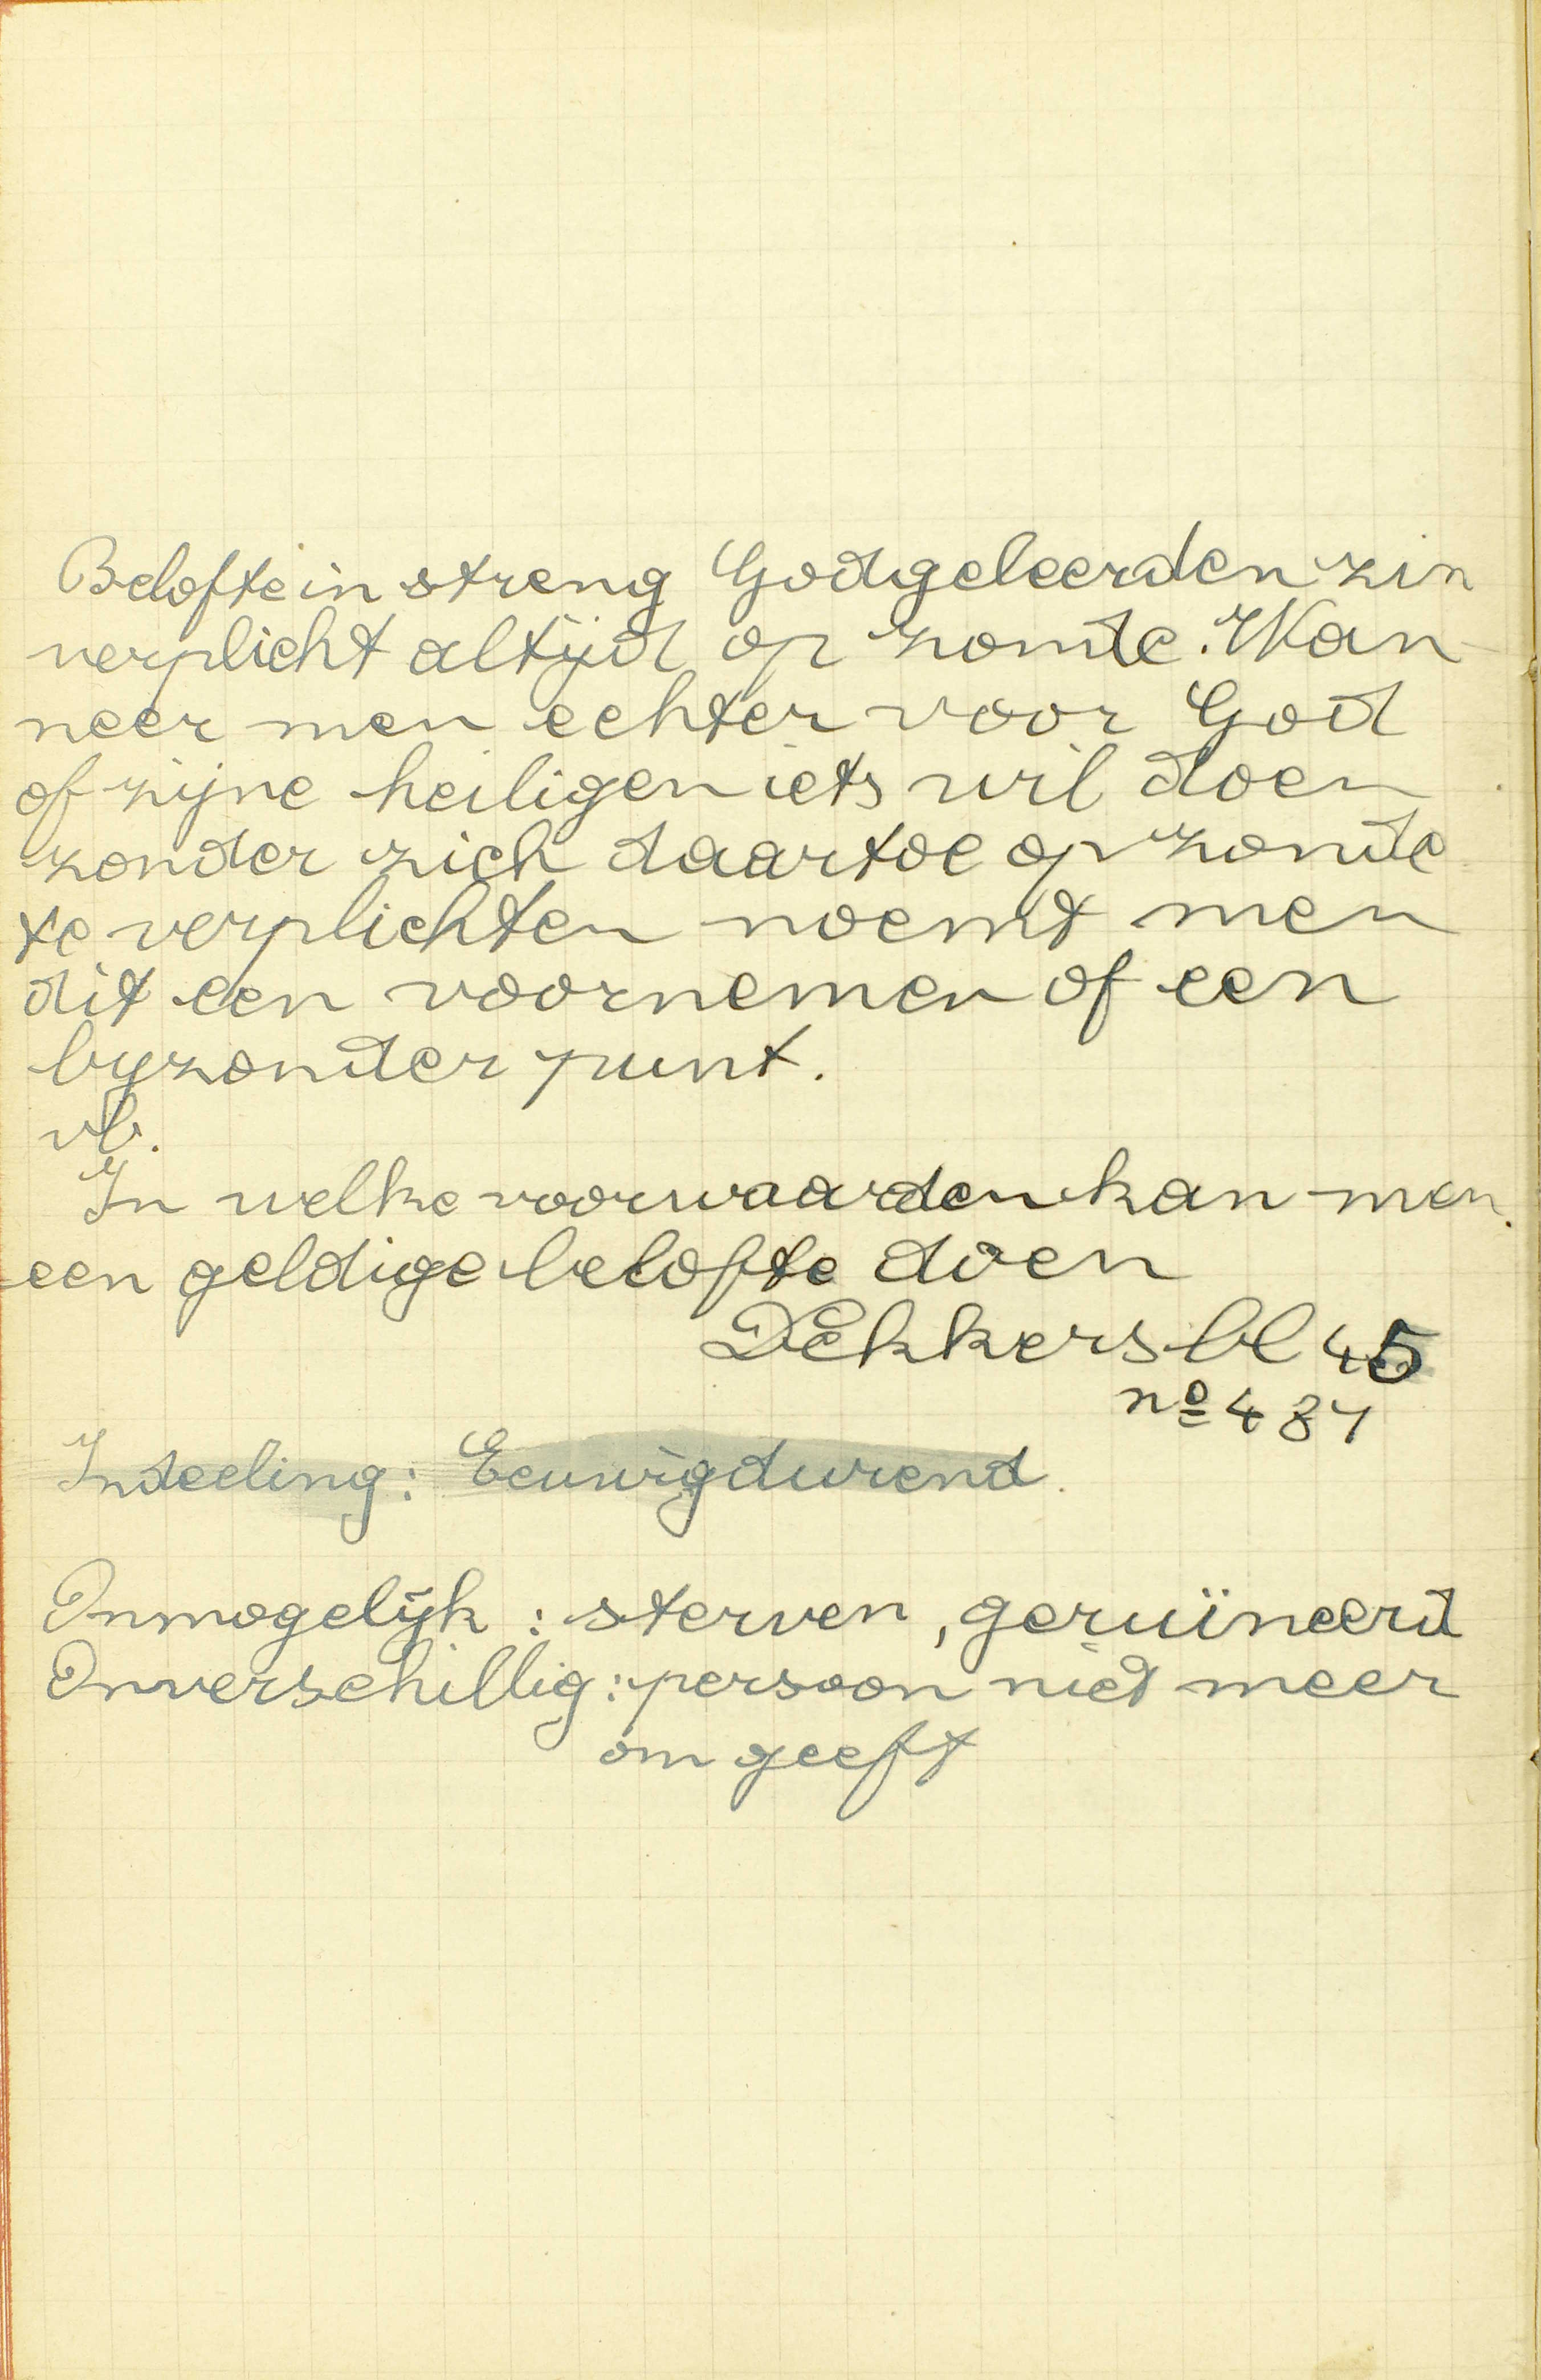 Belofte in streng Godgeleerden zin
verplicht altijd op zonde. Wan-
neer men echter voor God
of zijne heiligen iets wil doen
zonder zich daartoe op zonde
te verplichten noemt men
dit een voornemen of een
byzonder punt.
vb.
In welke voorwaarden kan men
een geldige belofte doen
Dekkers bl 45
nº 487
Indeeling: Eeuwigdurend.
Onmogelijk : sterven, geruïneerd
Onverschillig: persoon niet meer
om geeft